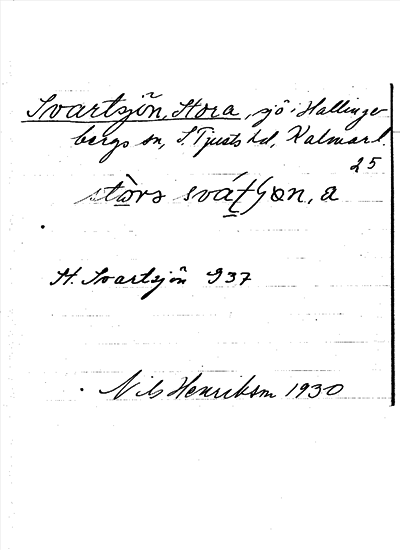 Svartsjön, Stora, sjö i Hallinge-
bergs sn, S. Tjusts hd, Kalmar l.
25
stòrs sváṭʃɷn, a
St. Svartsjön 937
Nils Henrikson 1930